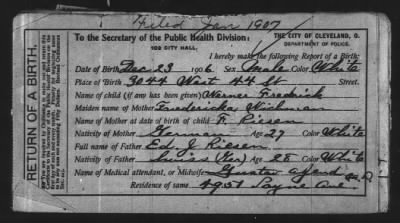 Filed Jan 1907
To the Secretary of the Public Health Division:
102 CITY HALL.
THE CITY OF CLEVELAND, O.
DEPARTMENT OF POLICE.
I hereby make the following Report of a Birth:
Date of Birth Dec 23 1906 Sex Male Color White
Place of Birth 3044 West 44 St Street.
Name of child (if any has been given) Werner Fredrick
Maiden name of Mother Fredericka
Name of Mother at date of birth of child F. Riesen
Nativity of Mother German Age 27 Color White
Full name of Father Ed. J Riesen
Nativity of Father Swiss (Ger) Age 28 Color White
Name of Medical attendant, or Midwife Gustav M.D.
Residence of same 4951 Payne Ave.
RETURN OF A BIRTH.